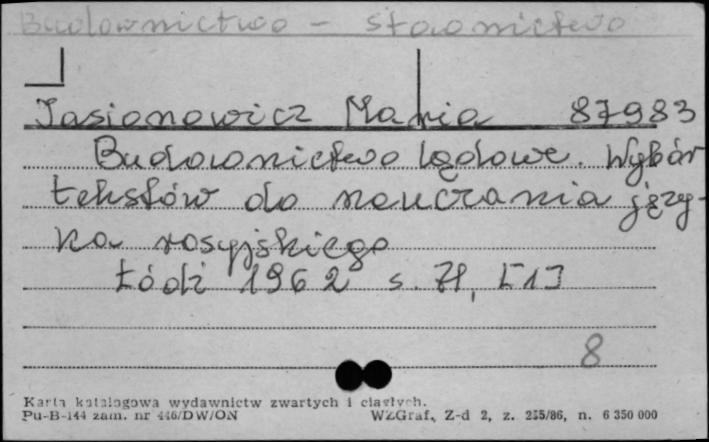 Budownictwo - słownictwo
Jasionowicz Maria 87983
Budownictwo lądowe. Wybór
tekstów do nauczania języ-
ka rosyjskiego
Łódź 1962 s. 71, [1]
8
Karta katalogowa wydawnictw zwartych i ciągłych.
Pu-B-144 zam. nr 446/DW/ON WZGraf, Z-d 2, z. 235/86, n. 6 350 000